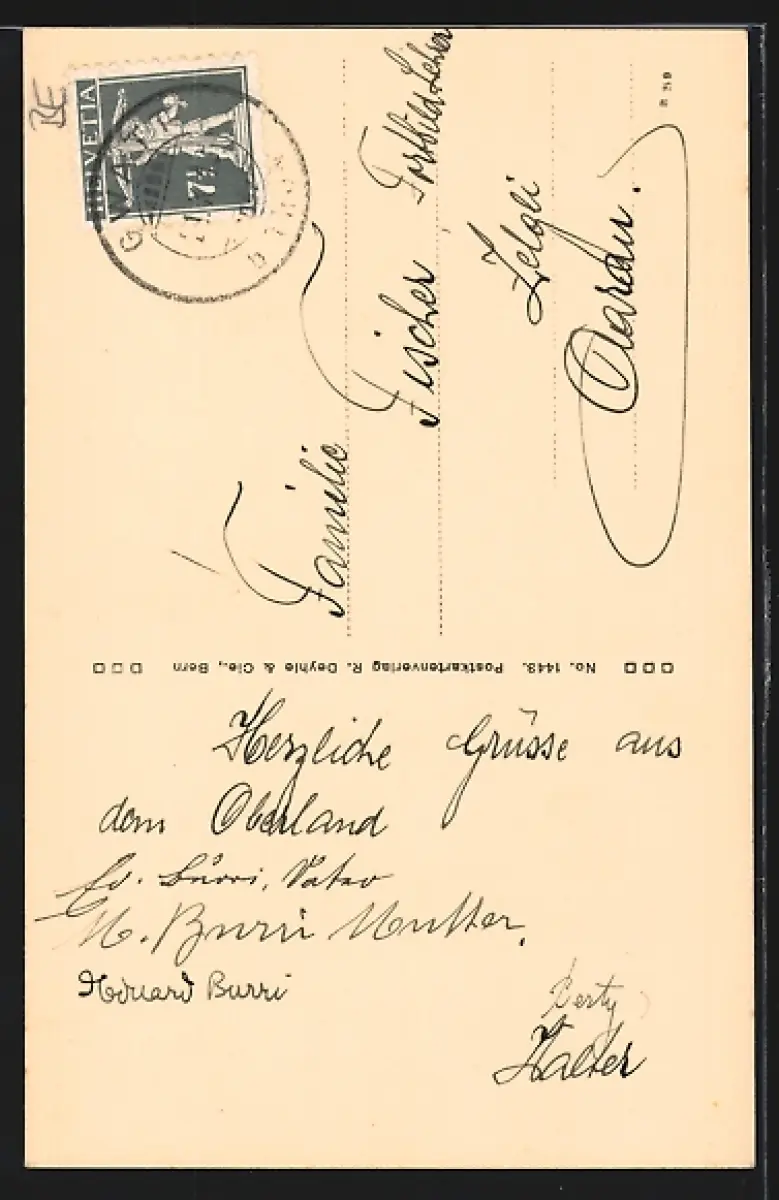 HELVETIA
7½
GWATT
BE
Familie
Fischer Fortbild. Lehrer
Zelgli
Aarau.
R 219
No. 1443. Postkartenverlag R. Deyhle & Cie., Bern
Herzliche Grüsse aus
dem Oberland
Ed. Burri, Vater
M. Burri Mutter.
Eduard Burri
Berty
Walter